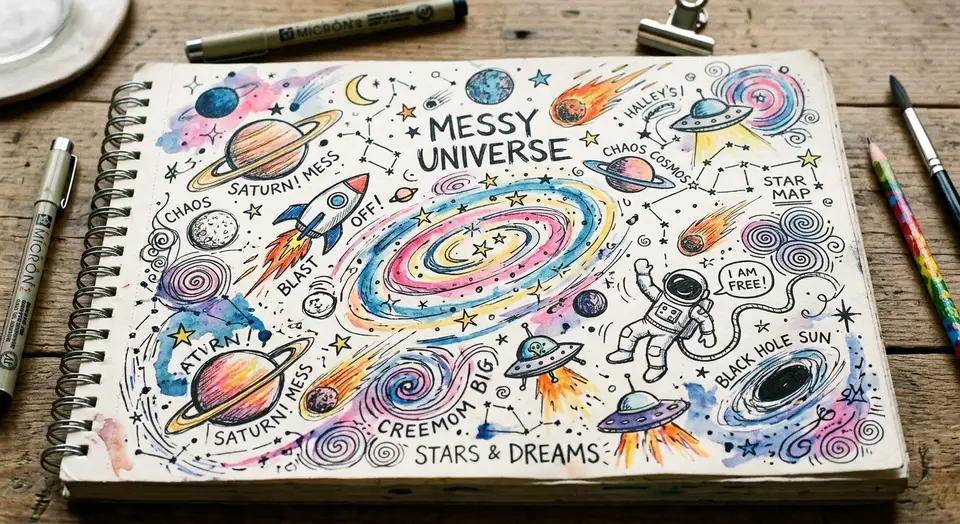 MICRON'S
MESSY
UNIVERSE
HALLEY'S!
SATURN! MESS
CHAOS COSMOS
STAR
MAP
CHAOS
BLAST OFF!
I AM
FREE!
MICRON'S
SATVRN!
SATURN! MESS
CREEMOM BIG
BLACK HOLE SUN
STARS & DREAMS